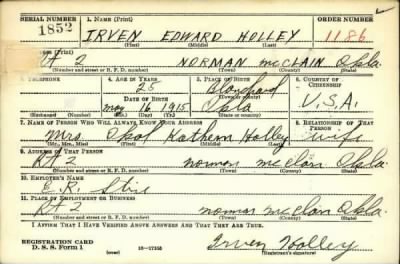 SERIAL NUMBER 1. NAME (Print) ORDER NUMBER
1852 IRVEN EDWARD HOLLEY 1186
(First) (Middle) (Last)
Rt 2 NORMAN McCLAIN Okla.
(Number and street or R. F. D. number) (Town) (County) (State)
3. TELEPHONE 4. AGE IN YEARS 5. PLACE OF BIRTH 6. COUNTRY OF CITIZENSHIP
25 Blanchard
DATE OF BIRTH (Town or county)
May 16 1915 Okla U.S.A.
(Exchange) (Number) (Mo.) (Day) (Yr.) (State or country)
7. NAME OF PERSON WHO WILL ALWAYS KNOW YOUR ADDRESS 8. RELATIONSHIP OF THAT PERSON
Mrs. Opal Holley wife
(Mr., Mrs., Miss) (First) (Middle) (Last)
9. ADDRESS OF THAT PERSON
Rt 2 Norman McClain Okla.
(Number and street or R. F. D. number) (Town) (County) (State)
10. EMPLOYER'S NAME
E. R.
11. PLACE OF EMPLOYMENT OR BUSINESS
Rt 2 Norman McClain Okla.
(Number and street or R. F. D. number) (Town) (County) (State)
I AFFIRM THAT I HAVE VERIFIED ABOVE ANSWERS AND THAT THEY ARE TRUE.
REGISTRATION CARD
D. S. S. Form 1 (over) Irven Holley
(Registrant's signature)